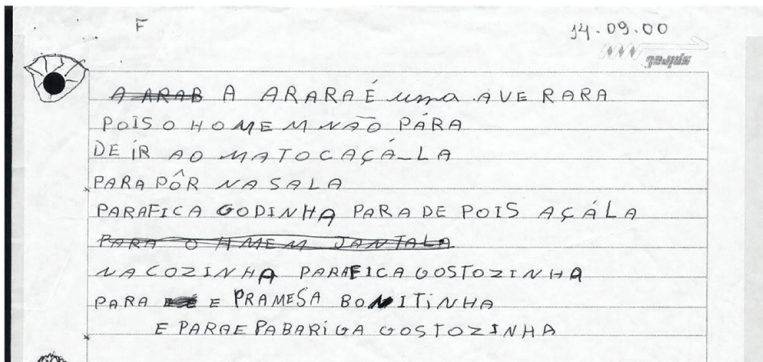 F
14.09.00
A ARAB A ARARA É uma AVE RARA
POIS O HOMEM NÃO PÁRA
DE ÍR AO MATO CAÇÁ-LA
PARA PÔR NA SALA
PARAFICA GODINHA PARA DE POIS AÇÁLA
PARA O HMEM JANTALA
NA COZINHA PARAFICA GOSTOZINHA
PARA E PRAMESA BONITINHA
E PARAE PABARIGA GOSTOZINHA